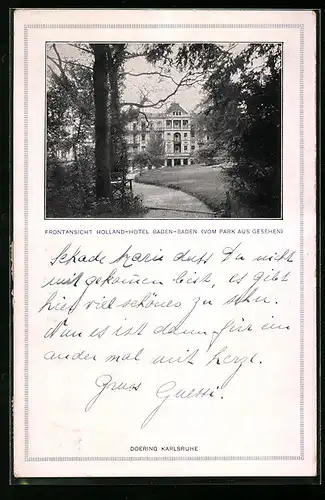 FRONTANSICHT HOLLAND-HOTEL BADEN-BADEN (VOM PARK AUS GESEHEN)
Schade Marie dass Du nicht
mit gekommen bist, es gibt
hier viel schönes zu sehn.
Nun es ist dann für ein
ander mal mit herzl.
Gruss Guessi.
DOERING KARLSRUHE